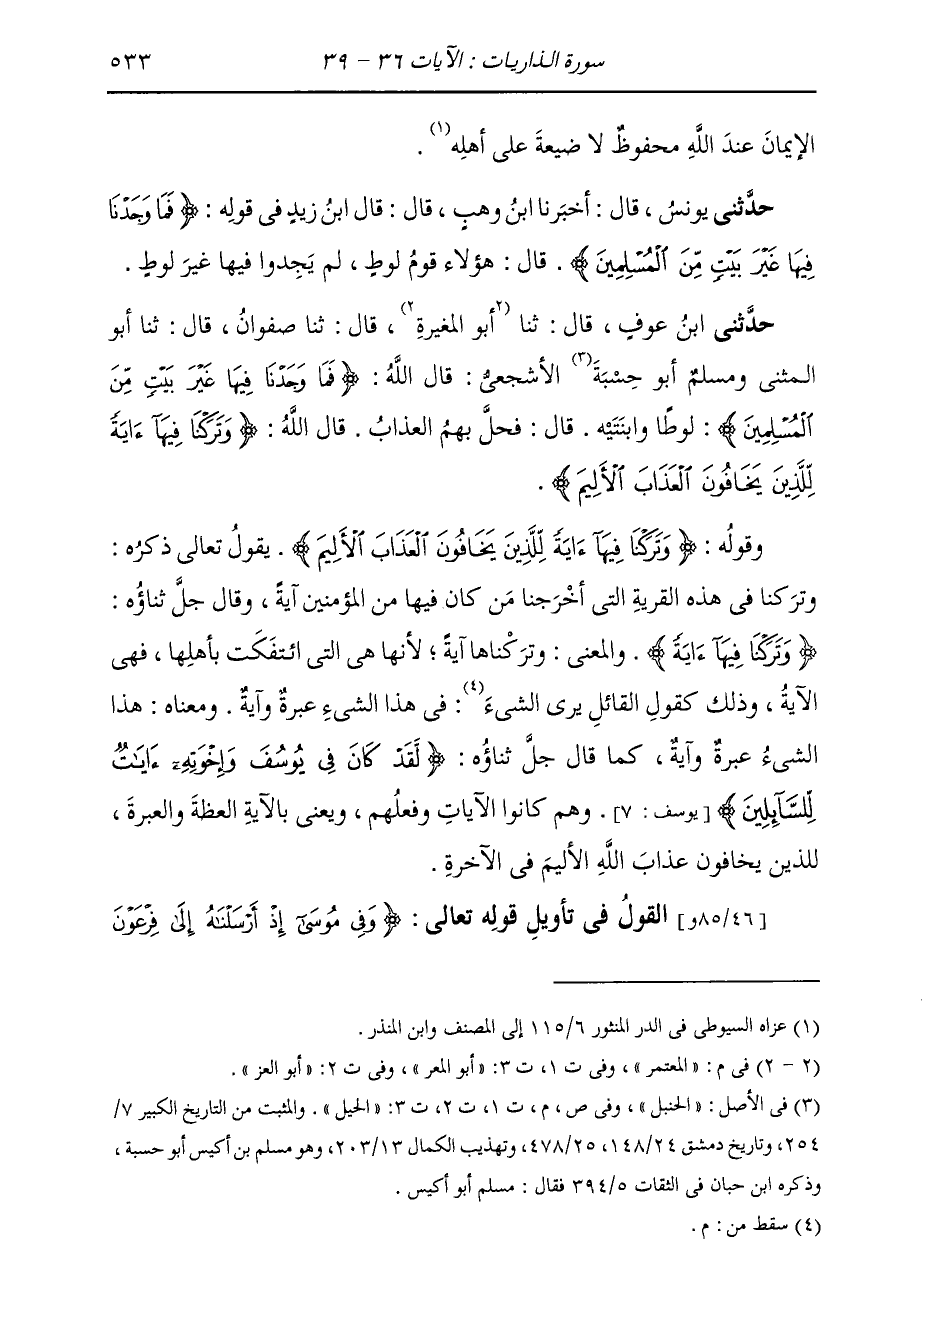 سورة الذاريات : الآيات ٣٦ - ٣٩
٥٣٣
الإيمانَ عندَ اللَّهِ محفوظٌ لا ضيعةَ على أهلِه(١) .
حدَّثنى يونسُ ، قال : أخبَرنا ابنُ وهبٍ ، قال : قال ابنُ زيدٍ فى قولِه : ﴿ فَمَا وَجَدْنَا
فِيهَا غَيْرَ بَيْتٍ مِّنَ ٱلْمُسْلِمِينَ ﴾ . قال : هؤلاء قومُ لوطٍ ، لم يَجِدوا فيها غيرَ لوطٍ .
حدَّثنى ابنُ عوفٍ ، قال : ثنا (٢أبو المغيرةِ٢) ، قال : ثنا صفوانُ ، قال : ثنا أبو
المثنى ومسلمٌ أبو حِسْبَةَ(٣) الأشجعىُّ : قال اللَّهُ : ﴿ فَمَا وَجَدْنَا فِيهَا غَيْرَ بَيْتٍ مِّنَ
ٱلْمُسْلِمِينَ ﴾ : لوطًا وابنَتَيْه . قال : فحلَّ بهمُ العذابُ . قال اللَّهُ : ﴿ وَتَرَكْنَا فِيهَآ ءَايَةً
لِّلَّذِينَ يَخَافُونَ ٱلْعَذَابَ ٱلْأَلِيمَ ﴾ .
وقولُه : ﴿ وَتَرَكْنَا فِيهَآ ءَايَةً لِّلَّذِينَ يَخَافُونَ ٱلْعَذَابَ ٱلْأَلِيمَ ﴾ . يقولُ تعالى ذكرُه :
وترَكنا فى هذه القريةِ التى أخْرَجنا مَن كان فيها من المؤمنين آيةً ، وقال جلَّ ثناؤُه :
﴿ وَتَرَكْنَا فِيهَآ ءَايَةً ﴾ . والمعنى : وترَكْناها آيةً ؛ لأنها هى التى ائتفَكَت بأهلِها ، فهى
الآيةُ ، وذلك كقولِ القائلِ يرى الشىءَ(٤) : فى هذا الشىءِ عبرةٌ وآيةٌ . ومعناه : هذا
الشىءُ عبرةٌ وآيةٌ ، كما قال جلَّ ثناؤُه : ﴿ لَّقَدْ كَانَ فِى يُوسُفَ وَإِخْوَتِهِۦٓ ءَايَٰتٌ
لِّلسَّآئِلِينَ ﴾ [يوسف : ٧] . وهم كانوا الآياتِ وفعلُهم ، ويعنى بالآيةِ العظةَ والعبرةَ ،
للذين يخافون عذابَ اللَّهِ الأليمَ فى الآخرةِ .
[٨٥/٤٦و] القولُ فى تأويلِ قولِه تعالى : ﴿ وَفِى مُوسَىٰٓ إِذْ أَرْسَلْنَٰهُ إِلَىٰ فِرْعَوْنَ
(١) عزاه السيوطى فى الدر المنثور ١١٥/٦ إلى المصنف وابن المنذر .
(٢ - ٢) فى م : « المعتمر » ، وفى ت ١، ت ٣: « أبو المعر » ، وفى ت ٢: « أبو العز » .
(٣) فى الأصل : « الحنبل » ، وفى ص ، م ، ت ١، ت ٢، ت ٣: « الحيل » . والمثبت من التاريخ الكبير ٧/
٢٥٤، وتاريخ دمشق ١٤٨/٢٤، ٤٧٨/٢٥، وتهذيب الكمال ٢٠٣/١٣، وهو مسلم بن أكيس أبو حسبة ،
وذكره ابن حبان فى الثقات ٣٩٤/٥ فقال : مسلم أبو أكيس .
(٤) سقط من : م .